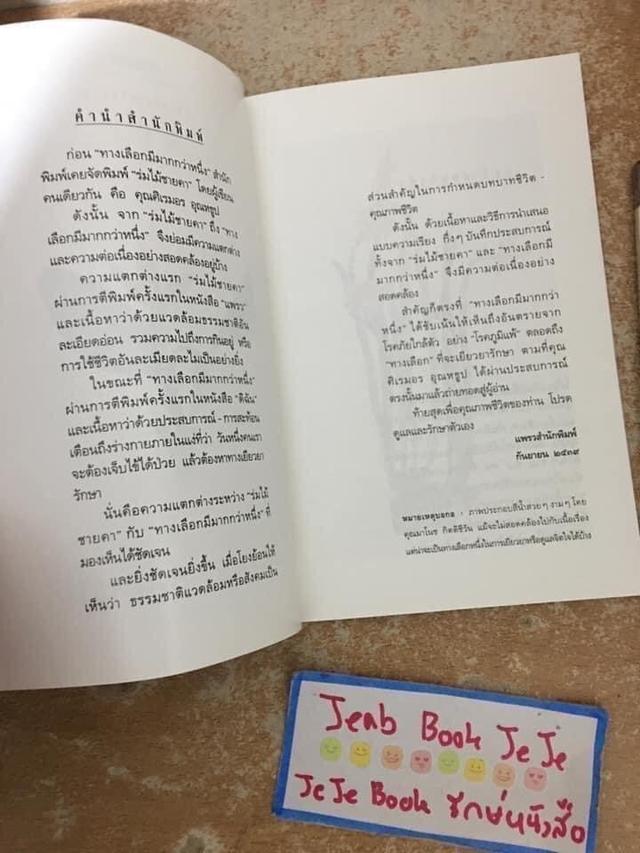 คำนำสำนักพิมพ์
ก่อน "ทางเลือกมีมากกว่าหนึ่ง" สำนัก
พิมพ์เคยจัดพิมพ์ "ร่มไม้ชายคา" โดยผู้เขียน
คนเดียวกัน คือ คุณศิเรมอร อุณหธูป
ดังนั้น จาก "ร่มไม้ชายคา" ถึง "ทาง
เลือกมีมากกว่าหนึ่ง" จึงย่อมมีความแตกต่าง
และความต่อเนื่องอย่างสอดคล้องอยู่บ้าง
ความแตกต่างแรก "ร่มไม้ชายคา"
ผ่านการตีพิมพ์ครั้งแรกในหนังสือ "แพรว"
และเนื้อหาว่าด้วยแวดล้อมธรรมชาติอัน
ละเอียดอ่อน รวมความไปถึงการกินอยู่ หรือ
การใช้ชีวิตอันละเมียดละไมเป็นอย่างยิ่ง
ในขณะที่ "ทางเลือกมีมากกว่าหนึ่ง"
ผ่านการตีพิมพ์ครั้งแรกในหนังสือ "ดิฉัน"
และเนื้อหาว่าด้วยประสบการณ์ - การสะท้อน
เตือนถึงร่างกายภายในแง่ที่ว่า วันหนึ่งคนเรา
จะต้องเจ็บไข้ได้ป่วย แล้วต้องหาทางเยียวยา
รักษา
นั่นคือความแตกต่างระหว่าง "ร่มไม้
ชายคา" กับ "ทางเลือกมีมากกว่าหนึ่ง" ที่
มองเห็นได้ชัดเจน
และยิ่งชัดเจนยิ่งขึ้น เมื่อโยงย้อนให้
เห็นว่า ธรรมชาติแวดล้อมหรือสังคมเป็น
ส่วนสำคัญในการกำหนดบทบาทชีวิต -
คุณภาพชีวิต
ดังนั้น ด้วยเนื้อหาและวิธีการนำเสนอ
แบบความเรียง กึ่งๆ บันทึกประสบการณ์
ทั้งจาก "ร่มไม้ชายคา" และ "ทางเลือกมี
มากกว่าหนึ่ง" จึงมีความต่อเนื่องอย่าง
สอดคล้อง
สำคัญก็ตรงที่ "ทางเลือกมีมากกว่า
หนึ่ง" ได้ขับเน้นให้เห็นถึงอันตรายจาก
โรคภัยใกล้ตัว อย่าง "โรคภูมิแพ้" ตลอดถึง
"ทางเลือก" ที่จะเยียวยารักษา ตามที่คุณ
ศิเรมอร อุณหธูป ได้ผ่านประสบการณ์
ตรงนั้นมาแล้วถ่ายทอดสู่ผู้อ่าน
ท้ายสุดเพื่อคุณภาพชีวิตของท่าน โปรด
ดูแลและรักษาตัวเอง
แพรวสำนักพิมพ์
กันยายน ๒๕๓๙
หมายเหตุบอกอ : ภาพประกอบสีน้ำสวยๆ งามๆ โดย
คุณมาโนช กิตติชีวัน แม้จะไม่สอดคล้องไปกับเนื้อเรื่อง
แต่น่าจะเป็นทางเลือกหนึ่งในการเยียวยาหรือดูแลจิตใจได้บ้าง
Jeab Book JeJe
JeJe Book รักษ์หนังสือ